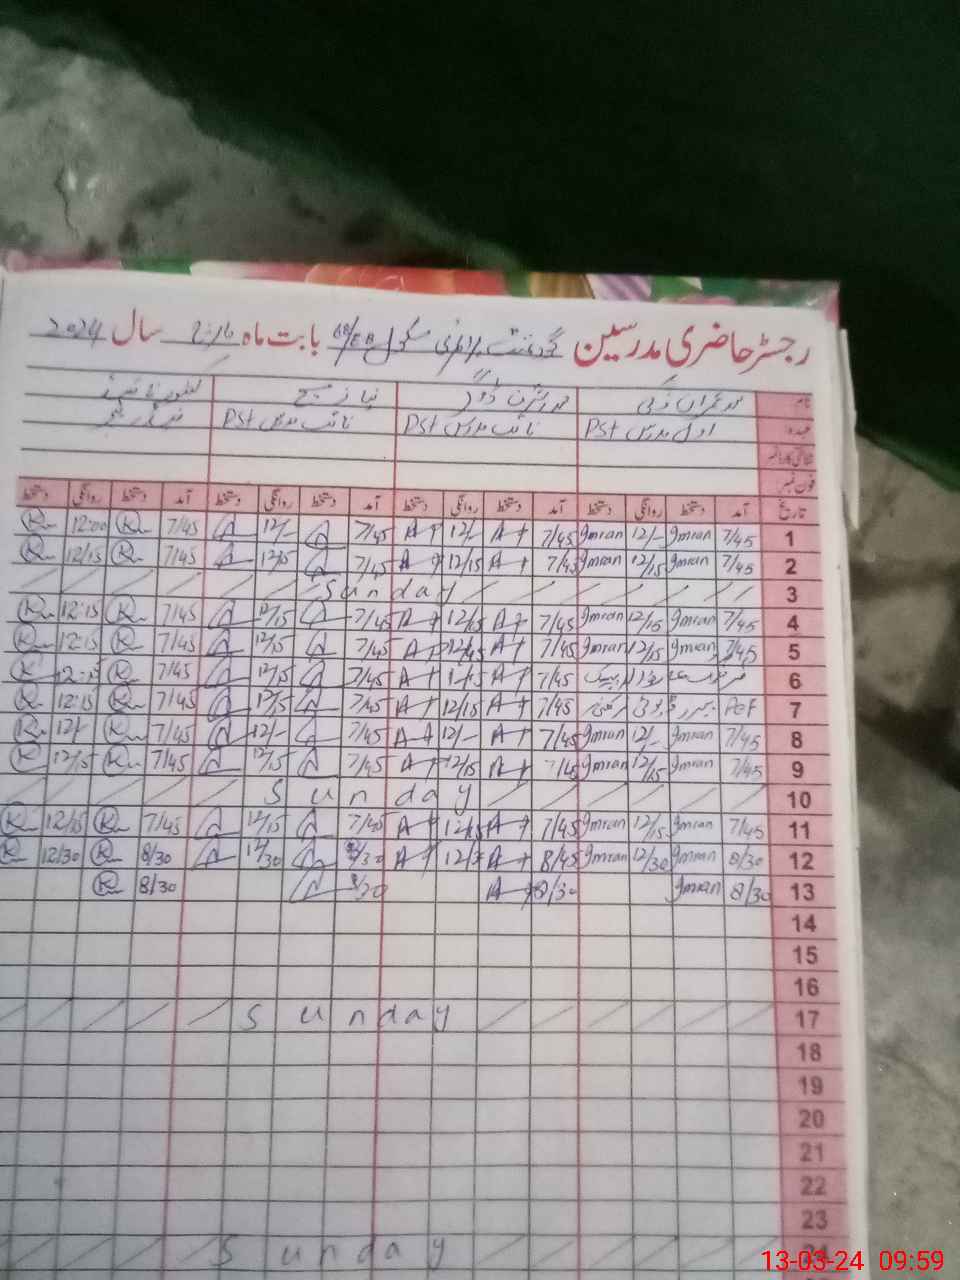 رجسٹر حاضری مدرسین گورنمنٹ پرائمری سکول 68/EB بابت ماہ مارچ سال 2024
نام محمد عمران
عہدہ اول مدرس PST نائب مدرس PST نائب مدرس PST
شناختی کارڈ نمبر
فون نمبر
تاریخ آمد دستخط روانگی دستخط آمد دستخط روانگی دستخط آمد دستخط روانگی دستخط آمد دستخط روانگی دستخط
1 7/45 Imran 12/- Imran 7/45 A+ 12/- A+ 7/45 12/- 7/45 K 12:00 K
2 7/45 Imran 12/15 Imran 7/45 A+ 12/15 A+ 7/45 12/15 7/45 K 12/15 K
3 Sunday
4 7/45 Imran 12/15 Imran 7/45 A+ 12/15 A+ 7/45 12/15 7/45 K 12:15 K
5 7/45 Imran 12/15 Imran 7/45 A+ 12/45 A+ 7/45 12/15 7/45 K 12:15 K
6 7/45 A+ A+ 7/45 12/15 7/45 K 12:15 K
7 PEF 7/45 A+ 12/15 A+ 7/45 12/15 7/45 K 12:15 K
8 7/45 Imran 12/- Imran 7/45 A+ 12/- A+ 7/45 12/- 7/45 K 12/- K
9 7/45 Imran 12/15 Imran 7/45 A+ 12/15 A+ 7/45 12/15 7/45 K 12/15 K
10 Sunday
11 7/45 Imran 12/15 Imran 7/45 A+ 12/15 A+ 7/45 12/15 7/45 K 12/15 K
12 8/30 Imran 12/30 Imran 8/45 A+ 12/3 A+ 8/30 12/30 8/30 K 12/30 K
13 8/30 Imran 8/30 A+ 8/30 8/30 K
14
15
16
17 Sunday
18
19
20
21
22
23
24 Sunday
13-03-24 09:59